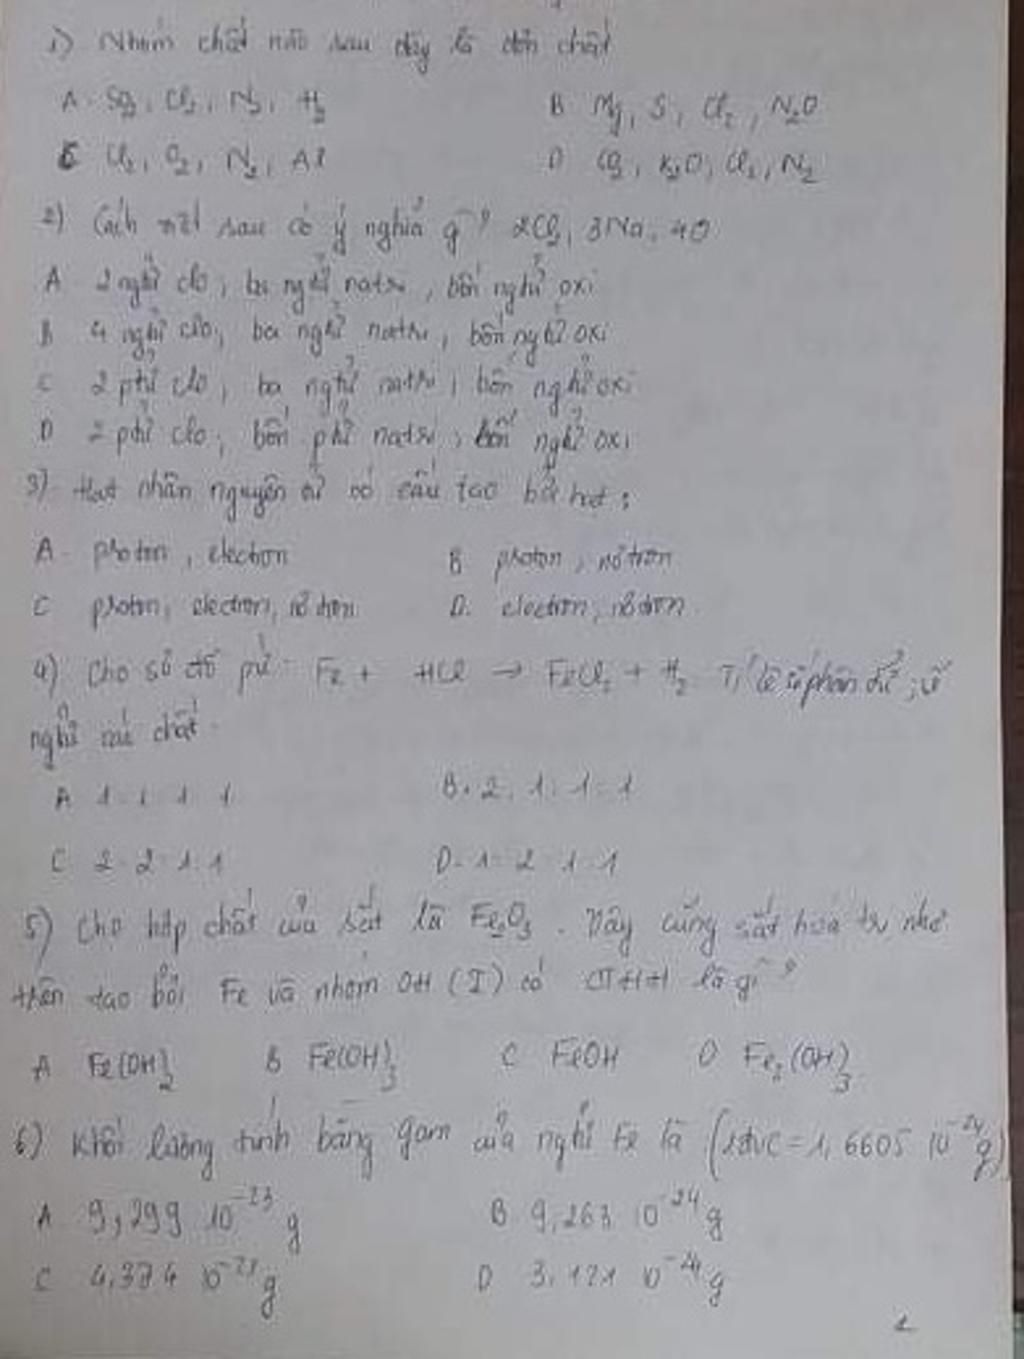 1) Nhóm chất nào sau đây là đơn chất
A. SO3, Cl2, N2, H2 B Mg, S, Cl2, N2O
C Cl2, O2, N2, Al D CO2, K2O, Cl2, N2
2) Cách viết sau có ý nghĩa gì? 2Cl2, 3Na, 4O
A 2 ngtử clo, ba ngtử natri, bốn ngtử oxi
B 4 ngtử clo, ba ngtử natri, bốn ngtử oxi
C 2 ptử clo, ba ngtử natri, bốn ngtử oxi
D 2 ptử clo, bốn ptử natri, bốn ngtử oxi
3) Hạt nhân nguyên tử có cấu tạo bởi hạt:
A. proton, electron B proton, nơtron
C proton, electron, nơtron D. electron, nơtron
4) Cho sơ đồ pứ: Fe + HCl → FeCl2 + H2 Tỉ lệ số phân tử, số
ngtử các chất.
A 1 : 1 : 1 : 1 B. 2 : 1 : 1 : 1
C 2 : 2 : 1 : 1 D. 1 : 2 : 1 : 1
5) Cho hợp chất của sắt là Fe2O3. Vậy cũng sắt hoá trị như
trên tạo bởi Fe và nhóm OH (I) có CTHH là gì?
A Fe(OH)2 B Fe(OH)3 C FeOH D Fe2(OH)3
6) Khối lượng tính bằng gam của ngtử Fe là (1đvC = 1,6605 10-24g)
A 9,299 10-23 g B 9,263 10-24 g
C 4,374 10-23 g D 3,121 10-24 g
1